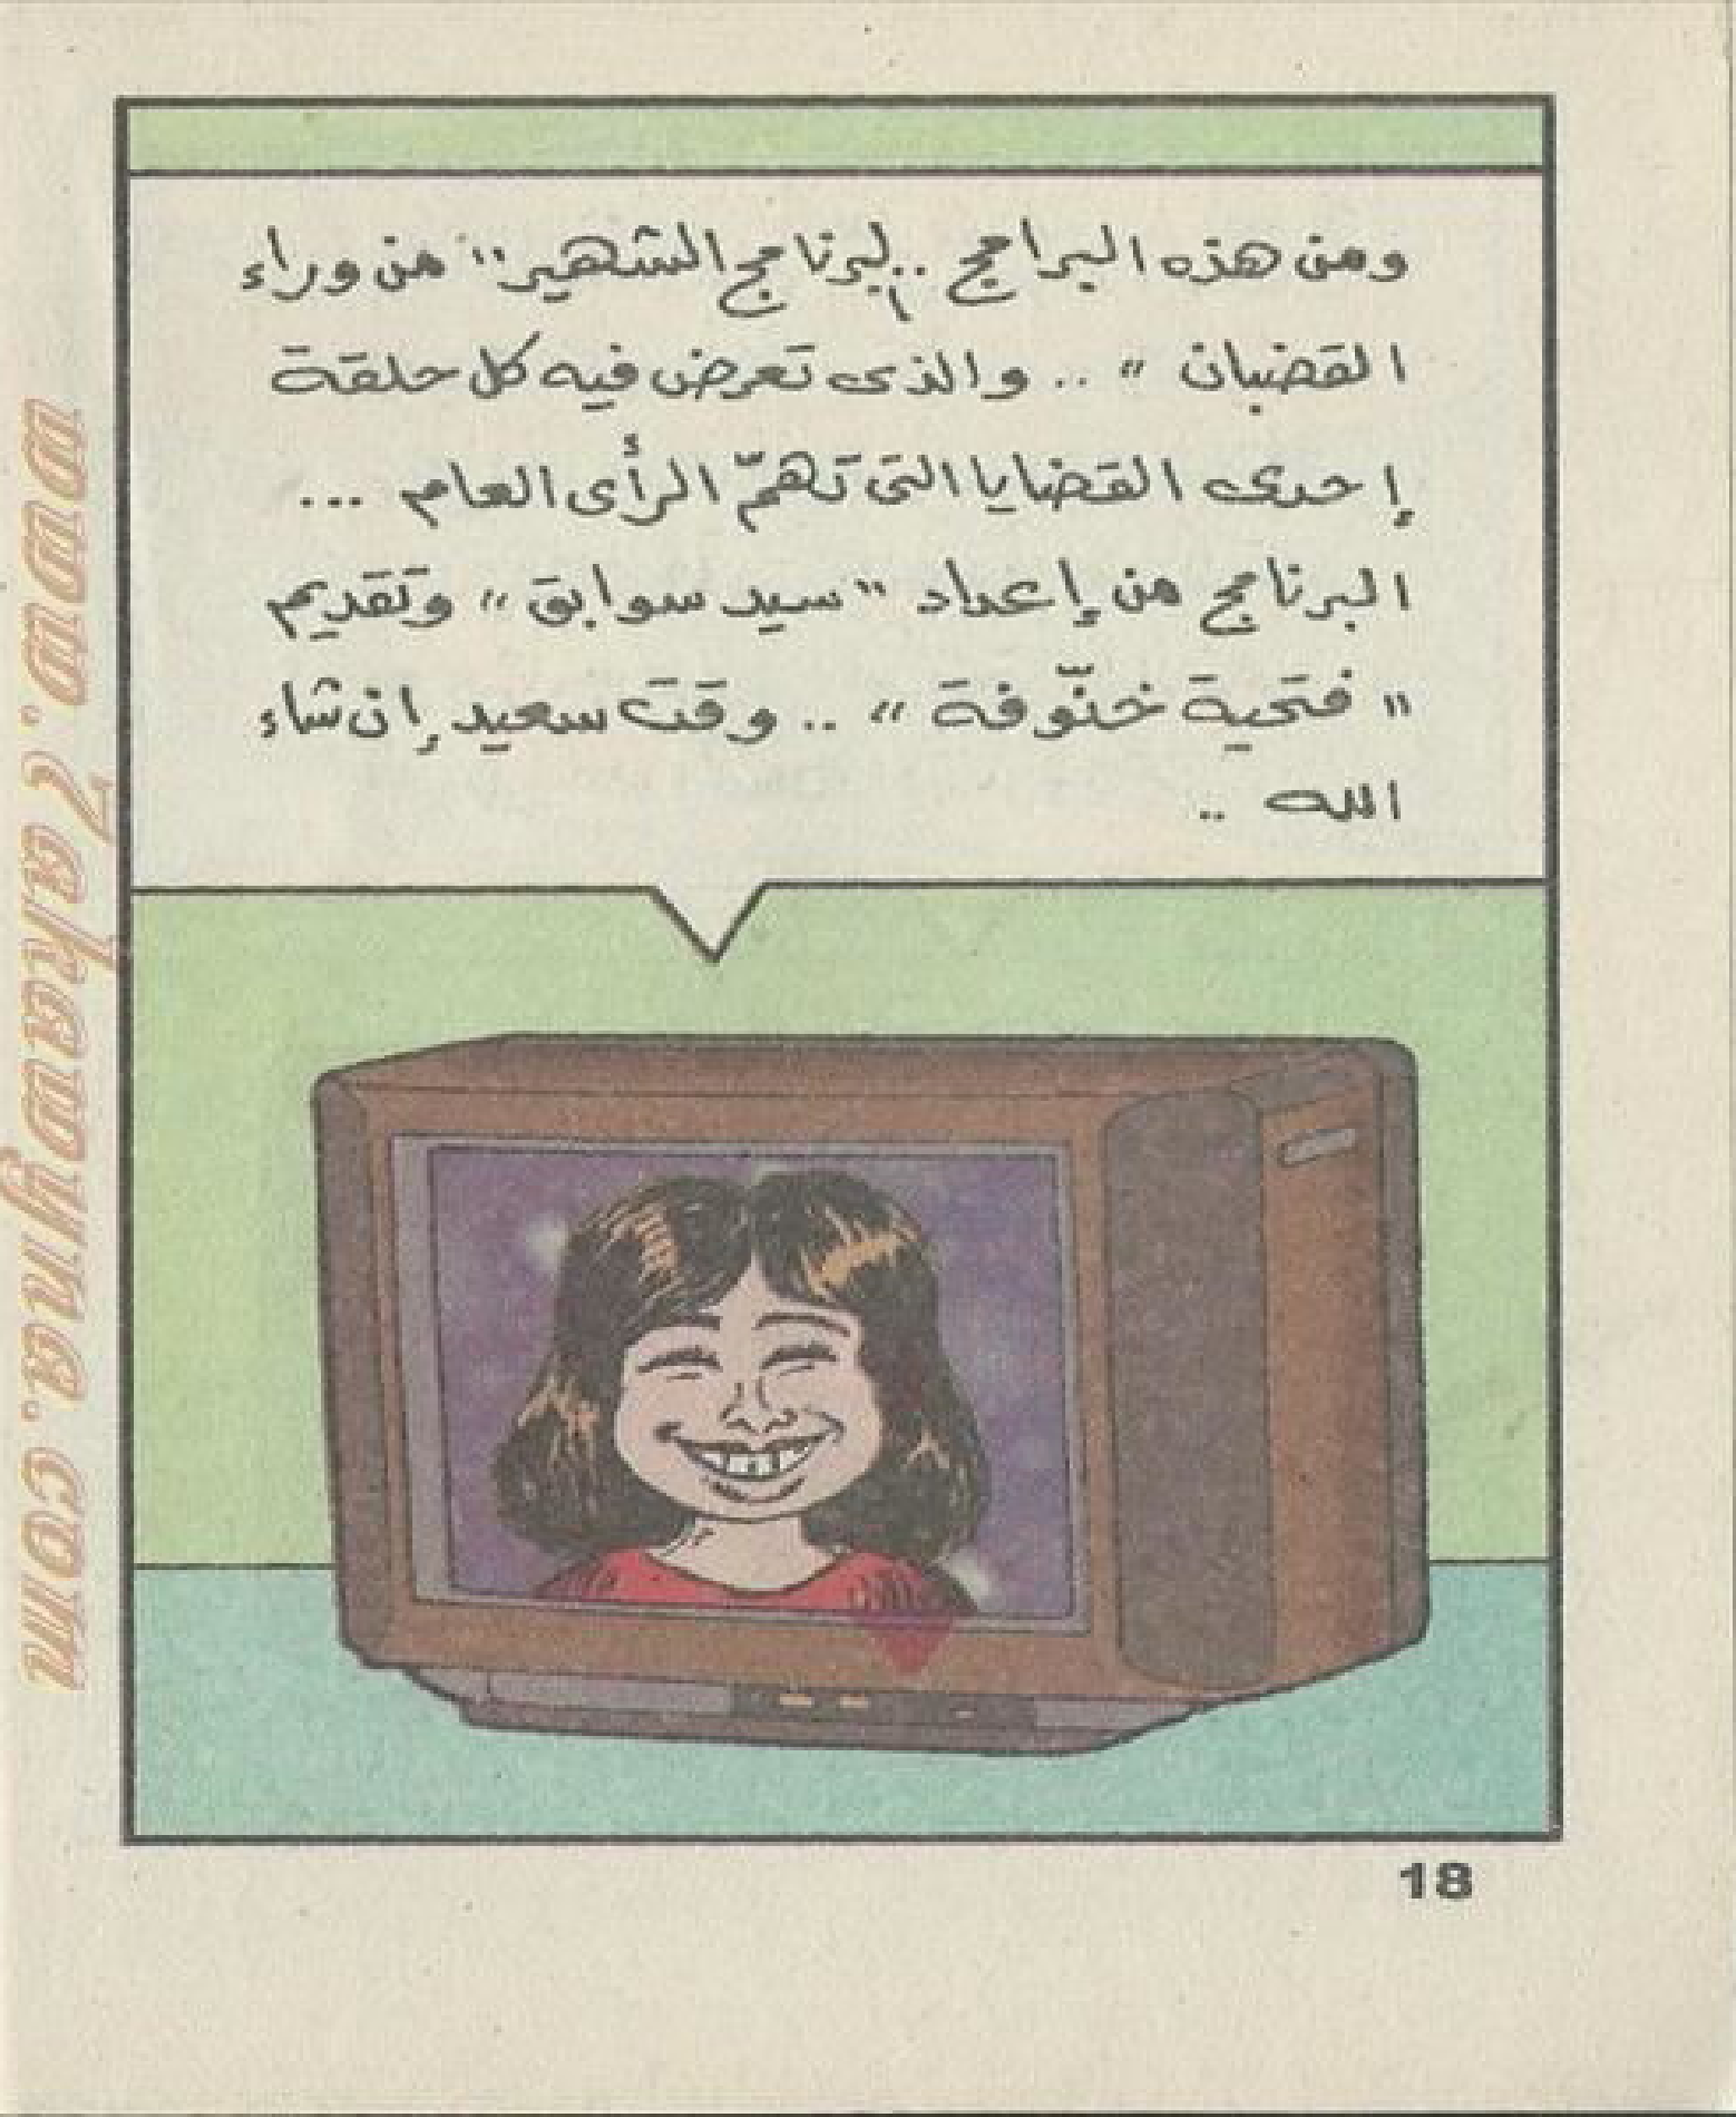 ومن هذه البرامج .. البرنامج الشهير " من وراء
القضبان " .. والذى تعرض فيه كل حلقة
إحدى القضايا التى تهمّ الرأى العام ...
البرنامج من إعداد " سيد سوابق " وتقديم
" فتحية خنّوفة " .. وقت سعيد إن شاء
الله ..
18